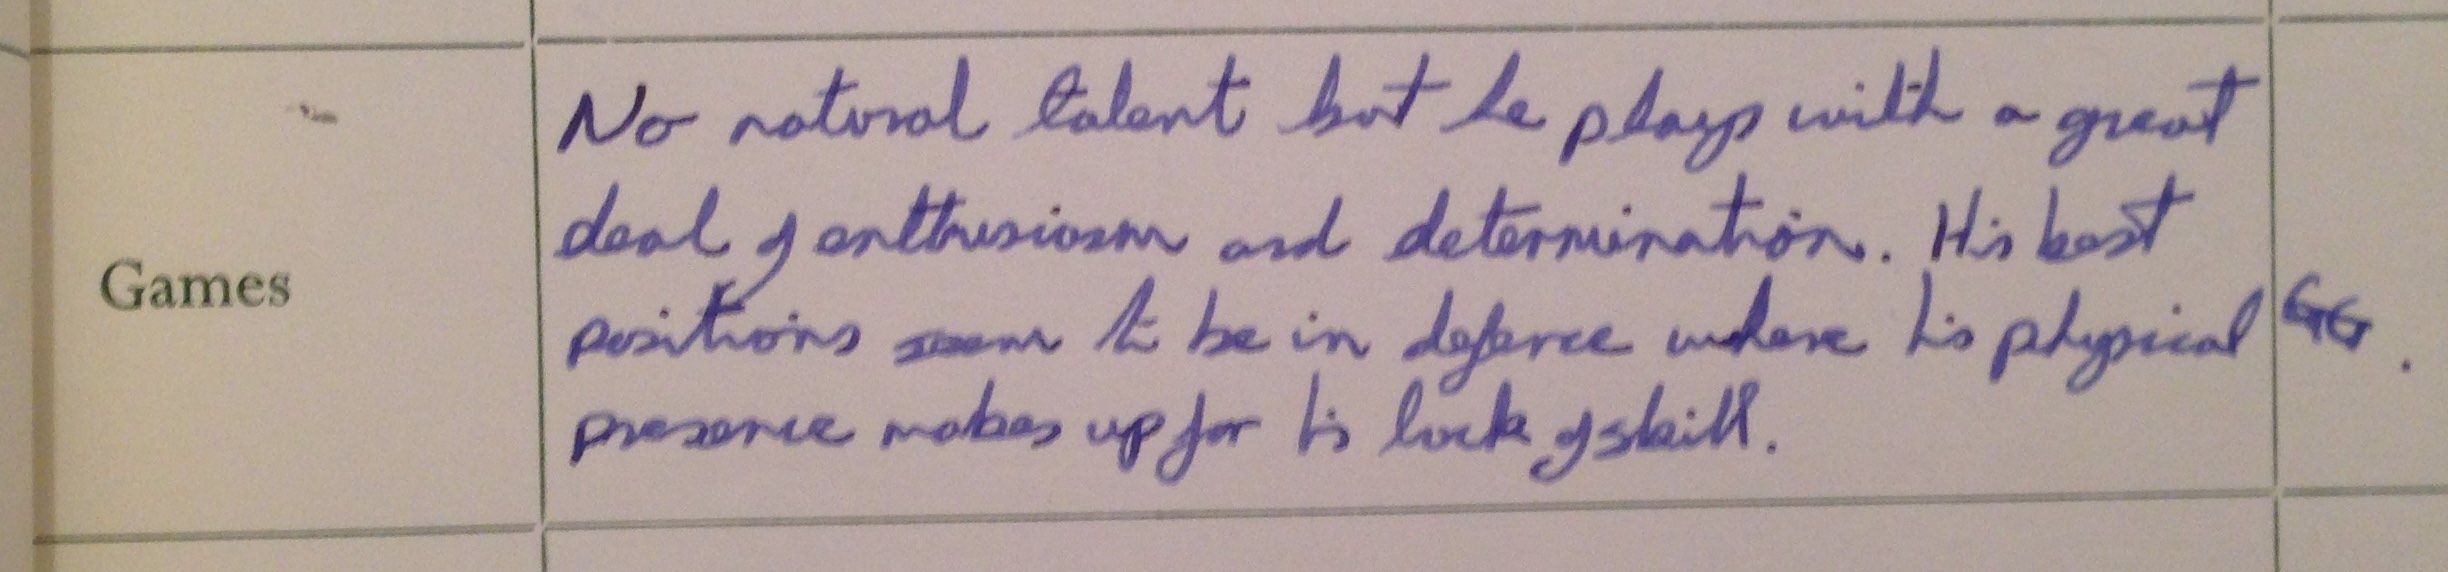 No natural talent but he plays with a great
deal of enthusiasm and determination. His best
Games
positions seem to be in defence where his physical GG.
presence makes up for his lack of skill.